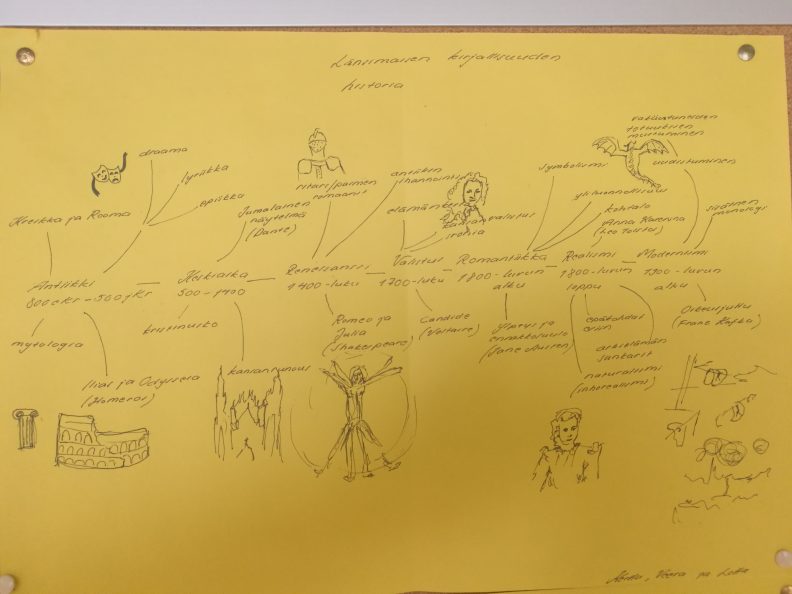 Länsimaisen kirjallisuuden
historia
draama
lyriikka
epiikka
Kreikka ja Rooma
Antiikki
800 eKr - 500 jKr
mytologia
Ilias ja Odysseia
(Homeros)
Jumalainen
näytelmä
(Dante)
Keskiaika
500-1400
kristinusko
kansanrunous
ritari/paimen
romaanit
antiikin
ihannointi
Renessanssi
1400-luku
Romeo ja
Julia
(Shakespeare)
elämänkerta
ironia
Valistus
1700-luku
Candide
(Voltaire)
symbolismi
yliluonnollisuus
Romantiikka
1800-luvun
alku
Ylpeys ja
ennakkoluulo
(Jane Austen)
kohtalo
Anna Karenina
(Leo Tolstoi)
Realismi
1800-luvun
loppu
epäkohdat
esiin
arkielämän
sankarit
naturalismi
(inhorealismi)
vakiintuneiden
totuuksien
murtuminen
uudistuminen
sisäinen
monologi
Modernismi
1900-luvun
alku
Oikeusjuttu
(Franz Kafka)
Veera ja Lotta